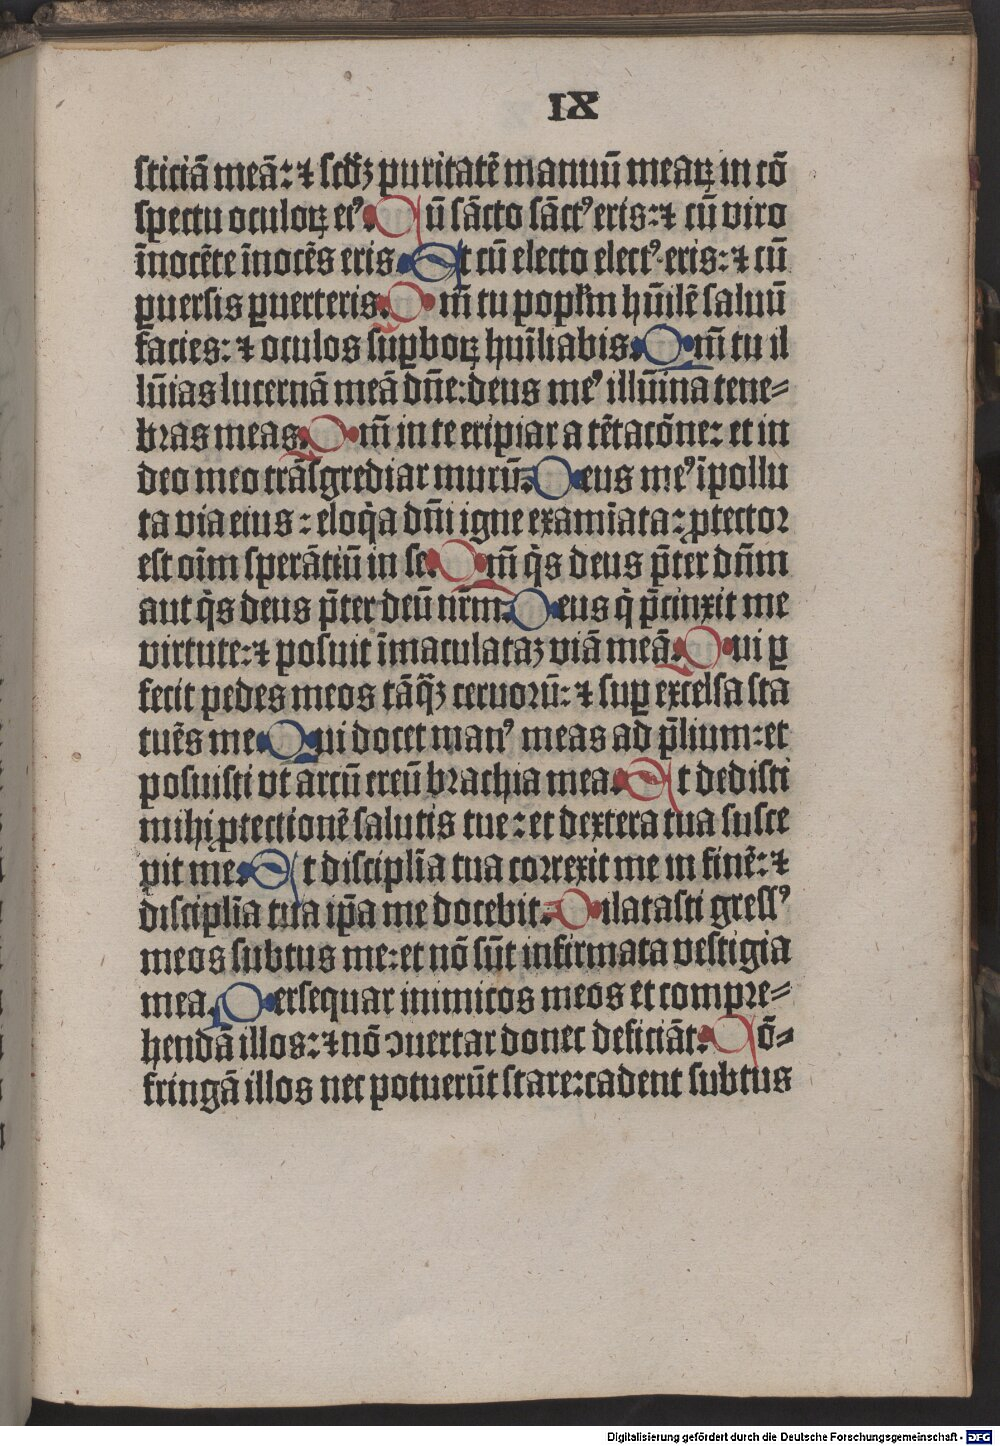 IX
sticiā meā: ⁊ scd̄ꝫ puritatē manuū mearꝝ in cō
spectu oculoꝝ eiꝰ. Cū sācto sāctꝰ eris: ⁊ cū viro
īnocēte īnocēs eris. Et cū electo electꝰ eris: ⁊ cū
ꝑuersis ꝑuerteris. Qm̄ tu popl̄m hūilē saluū
facies: ⁊ oculos suꝑboꝝ huīliabis. Qm̄ tu il
lūias lucernā meā dn̄e: deus meꝰ illūina tene⸗
bras meas. Qm̄ in te eripiar a tētacōne: et in
deo meo trāsgrediar murū. Deus meꝰ īpollu
ta via eius: eloq̄a dn̄i igne examīata: ꝓtector
est oīm sperātiū in se. Qm̄ q̄s deus p̄ter dn̄m
aut q̄s deus p̄ter deū nr̄m. Deus q̄ p̄cinxit me
virtute: ⁊ posuit īmaculataꝫ viā meā. Qui ꝑ
fecit pedes meos tāq̄ꝫ ceruorū: ⁊ suꝑ excelsa sta
tuēs me. Qui docet manꝰ meas ad p̄lium: et
posuisti vt arcū ereū brachia mea. Et dedisti
mihi ꝓtectionē salutis tue: et dextera tua susce
pit me. Et disciplīa tua correxit me in finē: ⁊
disciplīa tua ip̄a me docebit. Dilatasti gressꝰ
meos subtus me: et nō sūt infirmata vestigia
mea. Persequar inimicos meos et compre⸗
hendā illos: ⁊ nō ɔuertar donec deficiāt. Cō⸗
fringā illos nec potuerūt stare: cadent subtus
Digitalisierung gefördert durch die Deutsche Forschungsgemeinschaft - DFG